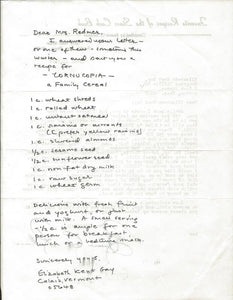 Dear Mrs. Redner,
I answered your letter -
or one of them - sometime this
winter - and sent you a
recipe for
"CORNUCOPIA" -
a Family Cereal
1 c. wheat shreds
1 c. rolled wheat
1 c. uncooked oatmeal
1 c. raisins or currants
(I prefer yellow raisins)
1 c. slivered almonds
1/2 c. sesame seed
1/2 c. sunflower seed
1 c. non-fat dry milk
1 c. raw sugar
1 c. wheat germ
Delicious with fresh fruit
and yoghurt, or just
with milk. A small serving
- 1/2 c. is ample for one
person for breakfast,
lunch or a bedtime snack.
Sincerely yours,
Elizabeth Kent Gay
Calais, Vermont
05648